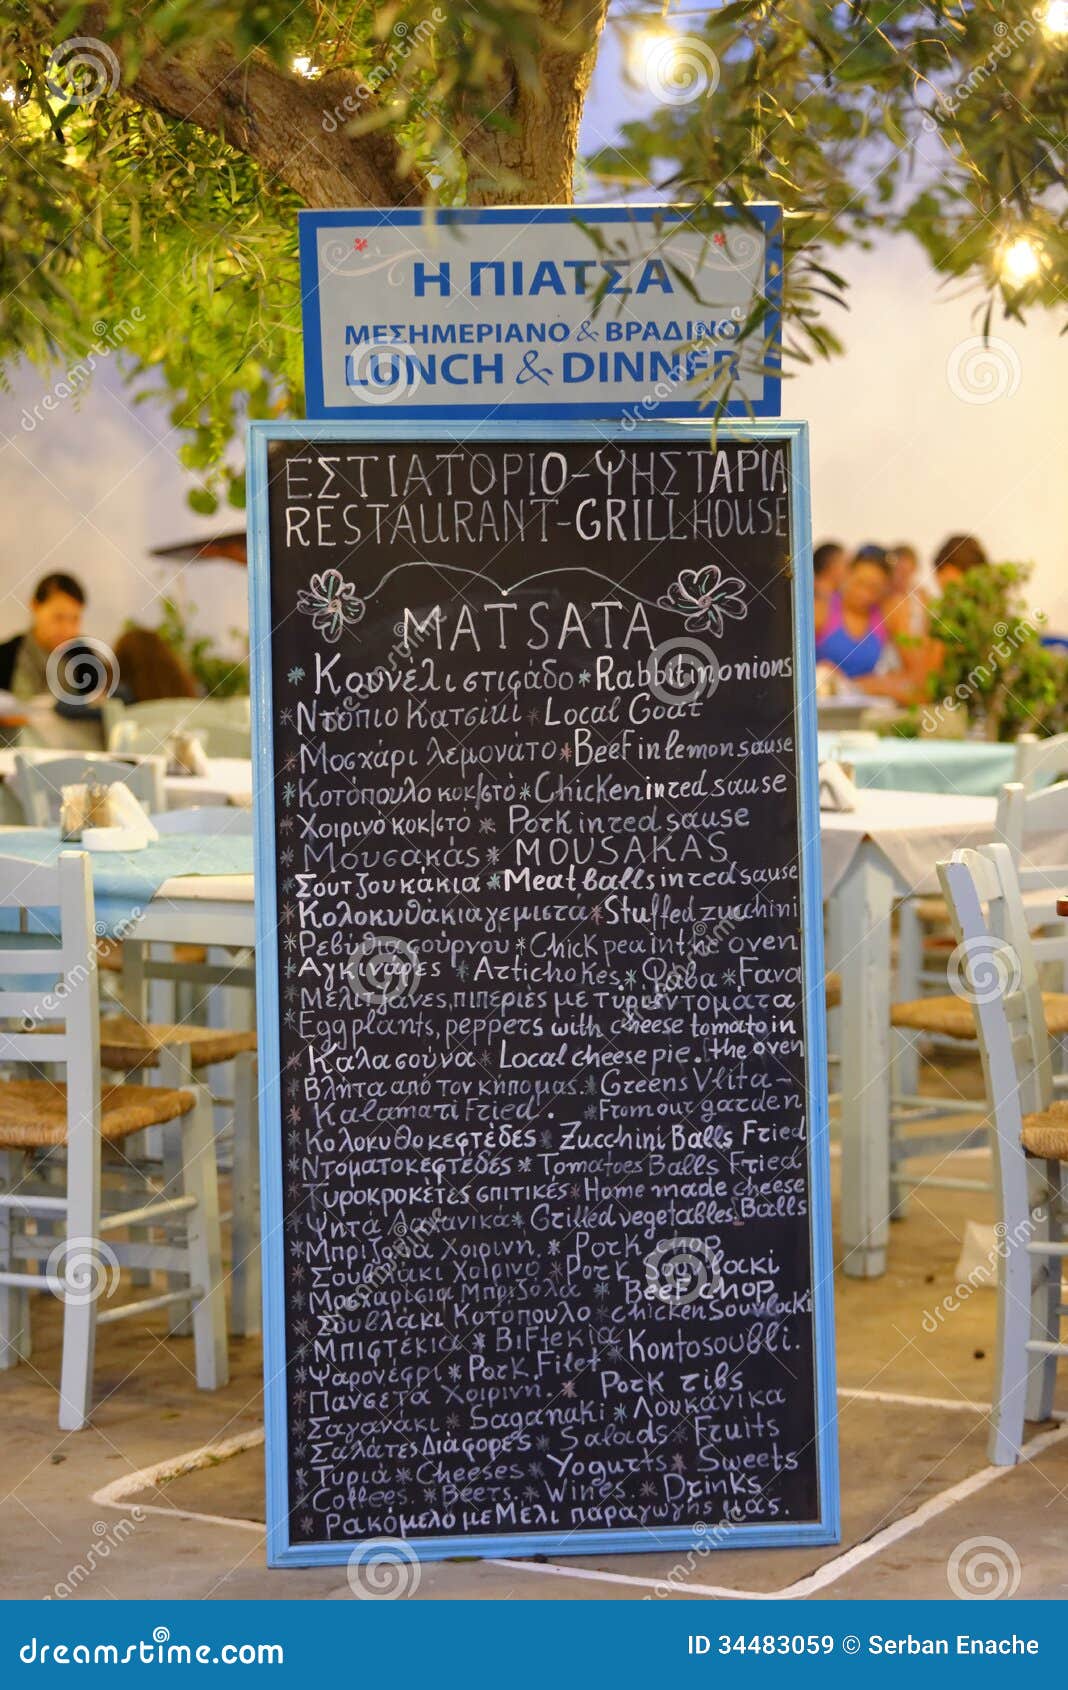 Η ΠΙΑΤΣΑ
ΜΕΣΗΜΕΡΙΑΝΟ & ΒΡΑΔΙΝΟ
LUNCH & DINNER
ΕΣΤΙΑΤΟΡΙΟ-ΨΗΣΤΑΡΙΑ
RESTAURANT-GRILL HOUSE
MATSATA
* Κουνέλι στιφάδο * Rabbit in onions
* Ντόπιο Κατσίκι * Local Goat
* Μοσχάρι λεμονάτο * Beef in lemon sause
* Κοτόπουλο κοκ/στό * Chicken in red sause
* Χοιρινό κοκ/στό * Pork in red sause
* Μουσακάς * MOUSAKAS
* Σουτζουκάκια * Meat balls in red sause
* Κολοκυθάκια γεμιστά * Stuffed zucchini
* Ρεβύθια φούρνου * Chick pea in the oven
* Αγκινάρες * Artichokes * Φάβα * Fava
* Μελιτζάνες, πιπεριές με τυρί εντομάτα
* Eggplants, peppers with cheese tomato in
* Καλασούνα * Local cheese pie. [the oven
* Βλήτα από τον κήπο μας. * Greens Vlita-
* Kalamari Fried. * From our garden
* Κολοκυθοκεφτέδες * Zucchini Balls Fried
* Ντοματοκεφτέδες * Tomatoes Balls Fried
* Τυροκροκέτες σπιτικές * Home made cheese
* Ψητά Λαχανικά * Grilled vegetables. Balls
* Μπριζόλα Χοιρινη. * Pork chop
* Σουβλάκι Χοιρινο * Pork Souvlacki
* Μοσχαρίσια Μπριζόλα * Beef chop
* Σουβλάκι Κοτόπουλο * chicken Souvlaki
* Μπιφτέκια * Biftekia * Kontosoubli.
* Ψαρονέφρι * Pork Filet
* Πανσέτα Χοιρινη. * Pork ribs
* Σαγανάκι * Saganaki * Λουκάνικα
* Σαλάτες Διάφορες * Salads * Fruits
* Τυριά * Cheeses * Yogurts * Sweets
* Coffees. * Beers. * Wines. * Drinks
* Ρακόμελο με Μέλι παραγωγής μας.
dreamstime.com
ID 34483059 © Serban Enache